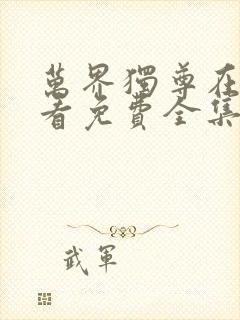 萬界獨尊在
看免費全集
武軍